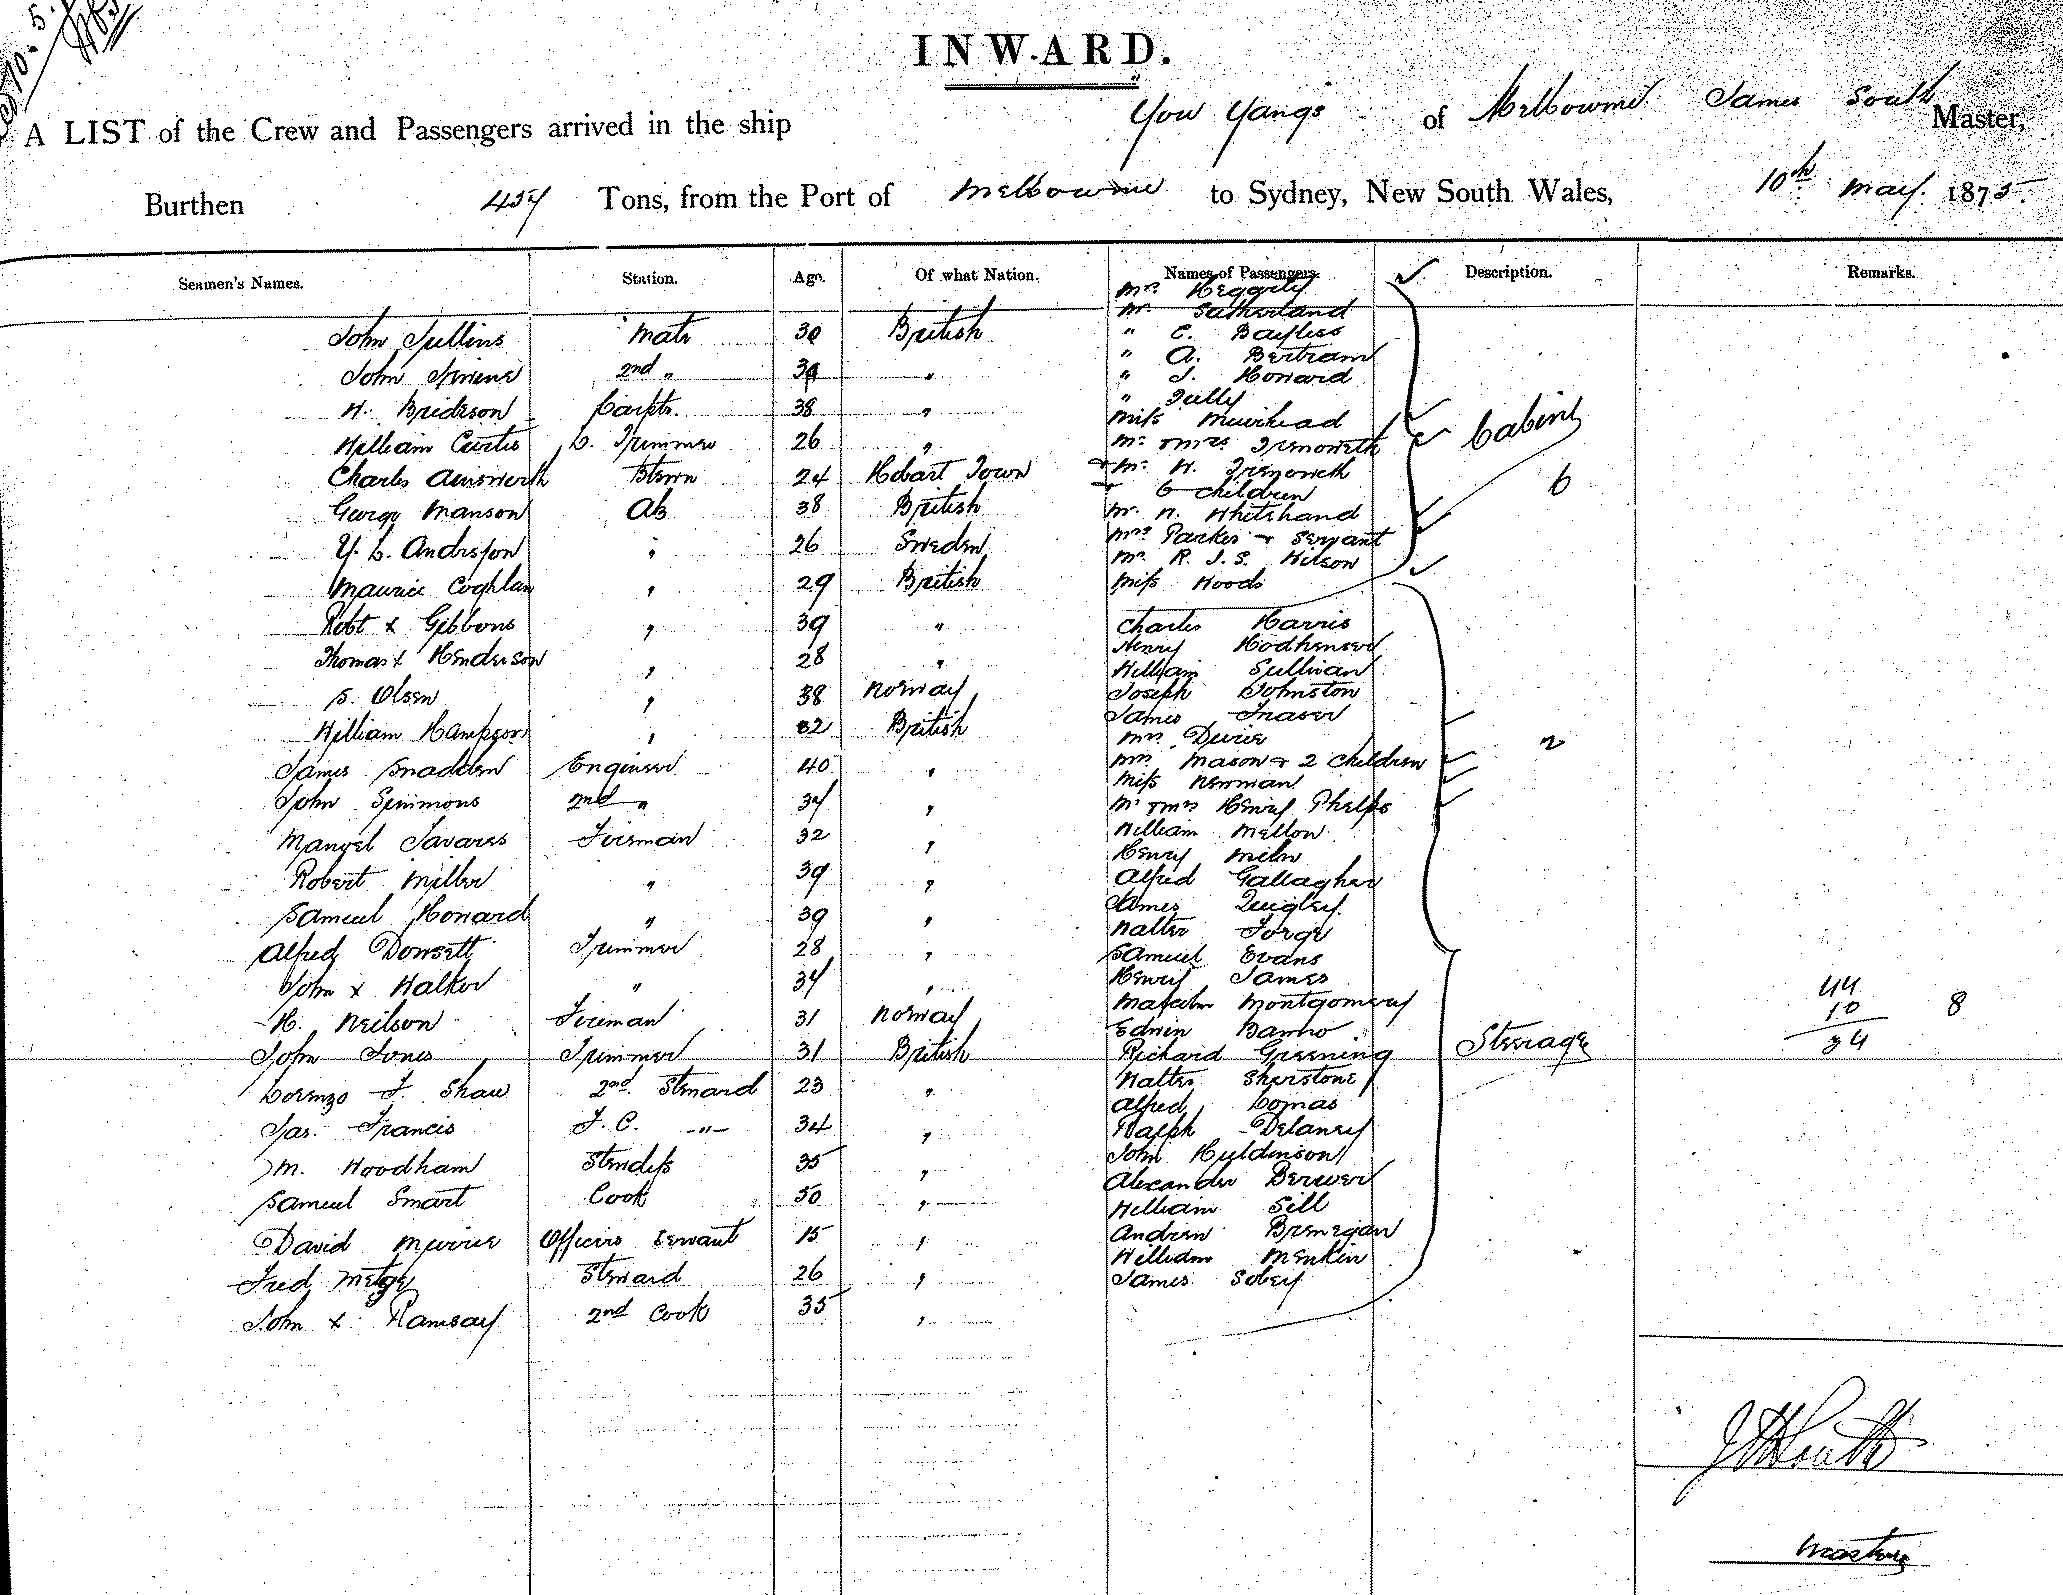 INWARD.
A LIST of the Crew and Passengers arrived in the ship You Yangs of Melbourne James South Master,
Burthen 457 Tons, from the Port of Melbourne to Sydney, New South Wales, 10th May 1875
Seamen's Names. Station. Age. Of what Nation. Names of Passengers. Description. Remarks.
Mrs. Heggely
Mr. Sutherland
John Mate 30 British " C. Bayless
" A. Bertram
John 2nd " 39 " " J. Howard
" Tully
H. Brideson Carptr. 38 " Miss Muirhead
William Curtis L. Trimmer 26 " Mr & Mrs Tremowith Cabin
Charles Ainsworth 24 Hobart Town + Mr. H. Tremowith 6
+ 6 children
George Manson AB 38 British Mr. W. Whitehand
Mrs Parker + Servant
Y. L. Anderson " 26 Sweden Mr. R. J. S. Wilson
Maurice Coghlan " 29 British Miss Woods
Robt x Gibbons " 39 " Charles Harris
Henry
Thomas x Henderson " 28 " William Sullivan
S. Olsen " 38 Norway Joseph Johnston
James Fraser
William Hampson " 32 British Mrs. Durie 2
James Snadden Engineer 40 " Mrs. Mason + 2 children
Miss Newman
John Simmons 2nd " 37 " Mr & Mrs Henry Phelps
Manuel Tavares Fireman 32 " William Mellon
Henry Miln
Robert Miller " 39 " Alfred Gallagher
Samuel Howard " 39 " James Quigley.
Walter Forge
Alfred Dowsett Trimmer 28 " Samuel Evans
John x Walker " 37 " Henry James
Malcolm Montgomery 44
H. Neilson Fireman 31 Norway Edwin 10 8
John Jones Trimmer 31 British Richard Greening Steerage 34
Lorenzo F. Shaw 2nd Steward 23 " Walter Sherstone
Alfred Lomas
Jas. Francis F. C. -"- 34 " Ralph Delaney
M. Woodham Stewdess 35 " John Huldinson
Alexander Berwer
Samuel Smart Cook 50 " William Sill
David Murrie Officers Servant 15 " Andrew Brenegan
William Menkin
Fred Metge Steward 26 " James Sobey
John x Ramsay 2nd Cook 35 "
J H South
Master